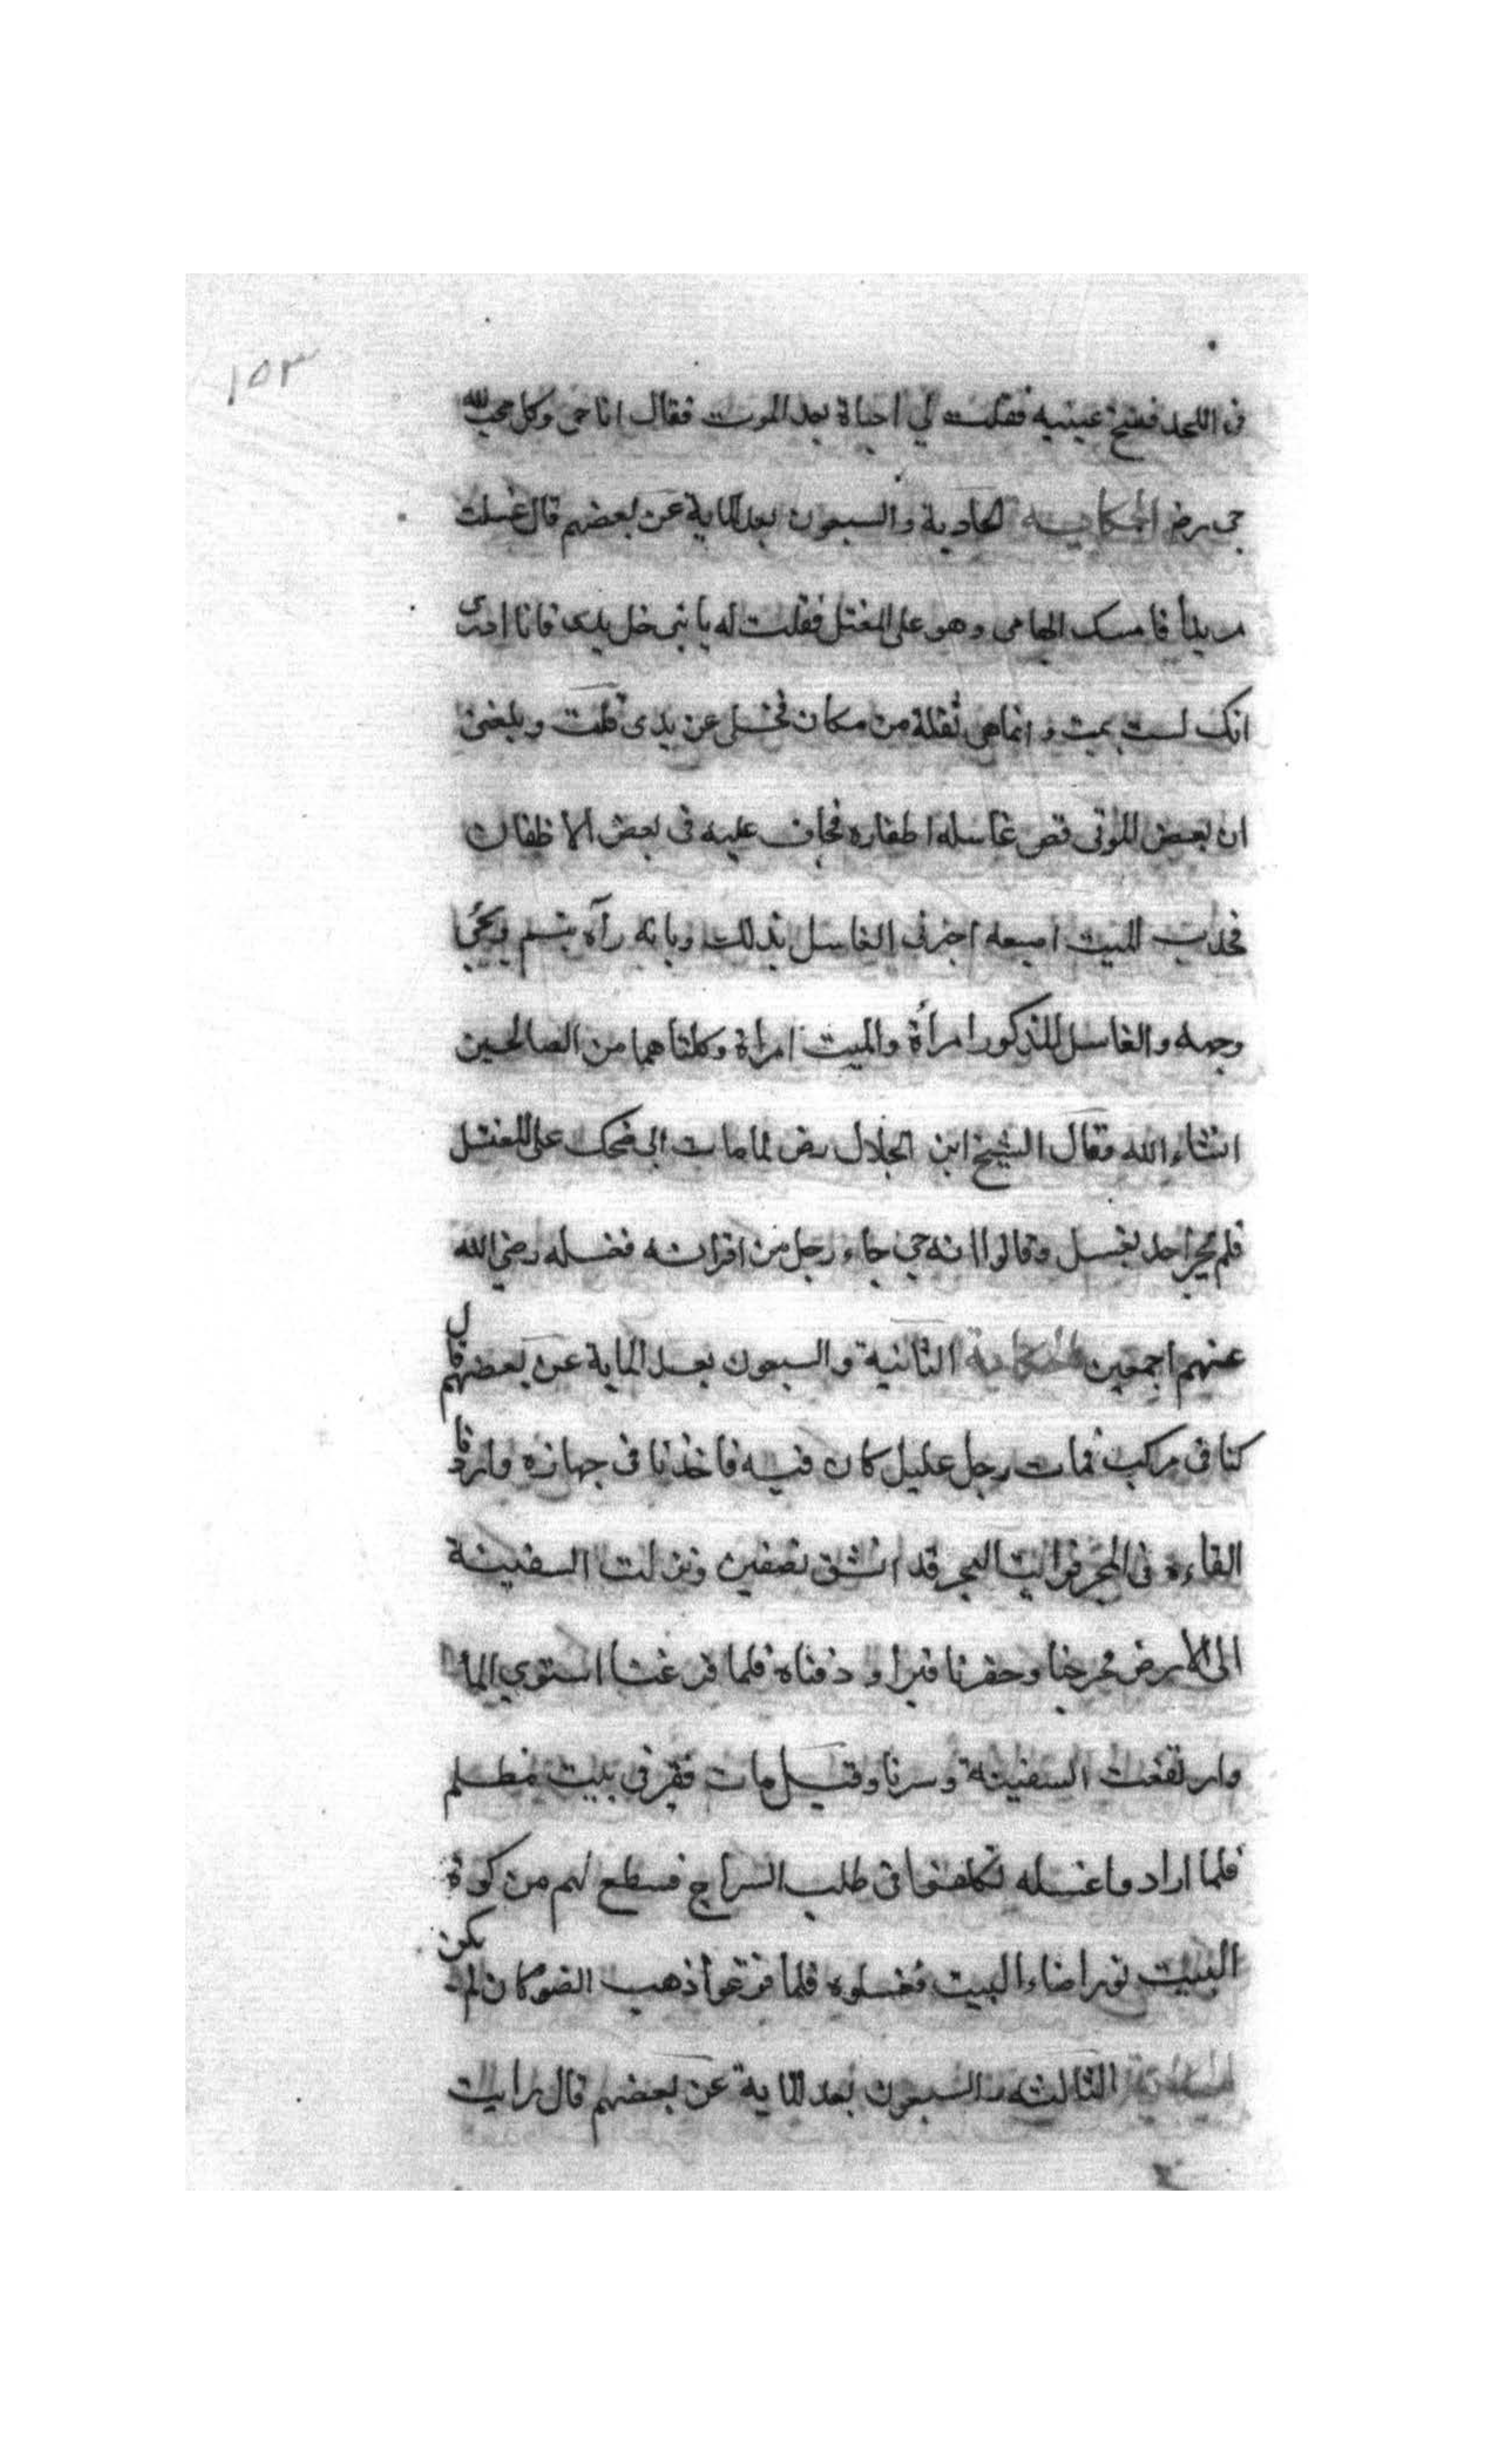 ١٥٣
فى اللحد ففتح عينيه فقلت لي احياة بعد الموت فقال انا حى وكل محب لله
حى رض الحكاية الحادية والسبعون بعد الماية عن بعضهم قال غسلت
مريدأ فامسك ابهامى وهو على المغتسل فقلت له يا بنى خل يدى فانا ادرى
انك لست بميت وانماهى نقلة من مكان فخلى عن يدى قلت وبلغنى
ان بعض الموتى قص غاسله اظفاره فجاف عليه فى بعض الاظفار
فجذب الميت اصبعه اخبرنى الغاسل بذلك وبانه رآه تبسم
وجهه والغاسل المذكور امرأة والميت امراة وكلتاهما من الصالحين
انشاء الله وقال الشيخ ابن الجلال رض لما مات ابى ضحك على المغتسل
فلم احد يغسل وقالوا انه حي جاء رجل من اقرانه فغسله رضي الله
عنهم اجمعين الحكاية الثانية والسبعون بعد الماية عن بعضهم قال
كنا فى مركب فمات رجل عليل كان فيه فاخذنا فى جهازه واردنا
القاءه فى البحر فرايت البحر قد انشق نصفين ونزلت السفينة
الى الارض فخرجنا وحفرنا قبرا ودفناه فلما فرغنا استوي الماء
وارتفعت السفينة وسرنا وقيل مات فقير فى بيت مظلم
فلما ارادوا غسله تكلفوا فى طلب السراج فسطع لهم من كوة
البيت نور اضاء البيت فغسلوه فلما فرغوا ذهب الضو كان لم يكن
الحكاية الثالثه والسبعون بعد الماية عن بعضهم قال رايت